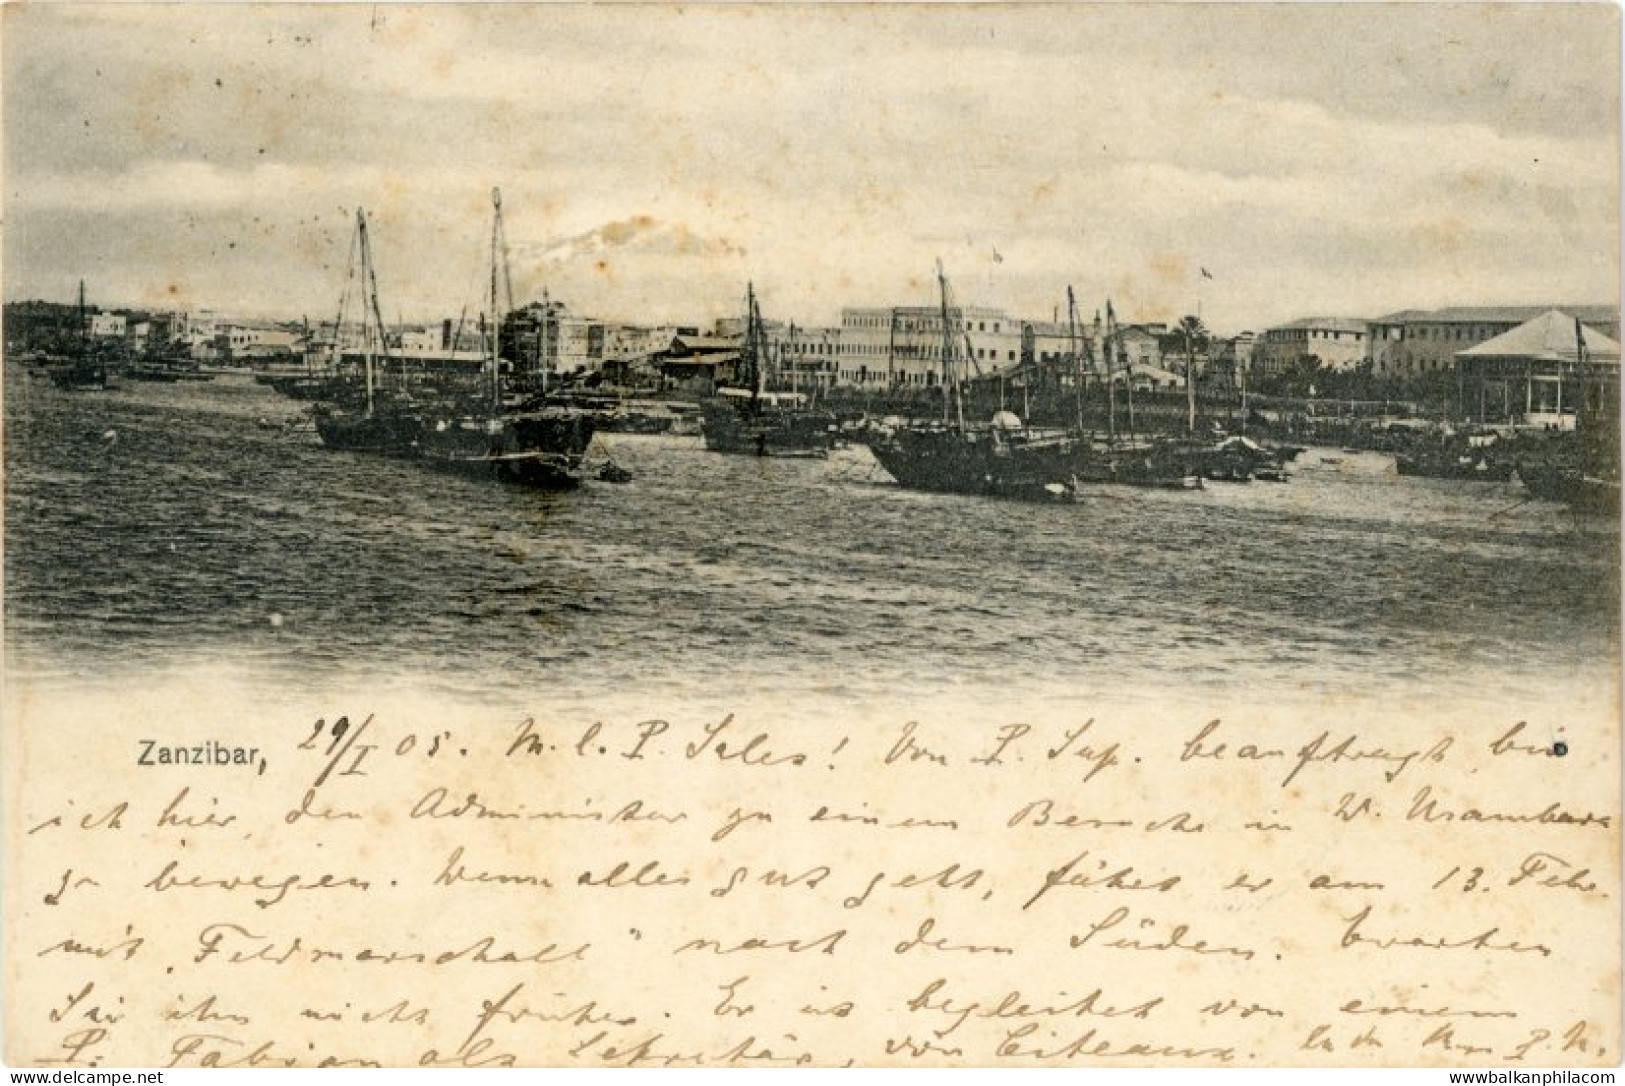 Zanzibar, 29/I 05. M. l. P. Sales! Von P. Sup. beauftragt bin
ich hier, den Administer zu einem Besuche in W. Usambara
zu bewegen. Wenn alles gut geht, fährt er am 13. Febr.
mit „Feldmarschall" nach dem Süden. Erwarten
Sie ihn nicht früher. Er is begleitet von einem
P. Fabian als Sekretär, von Citeaux. P. N.
www.balkanphila.com